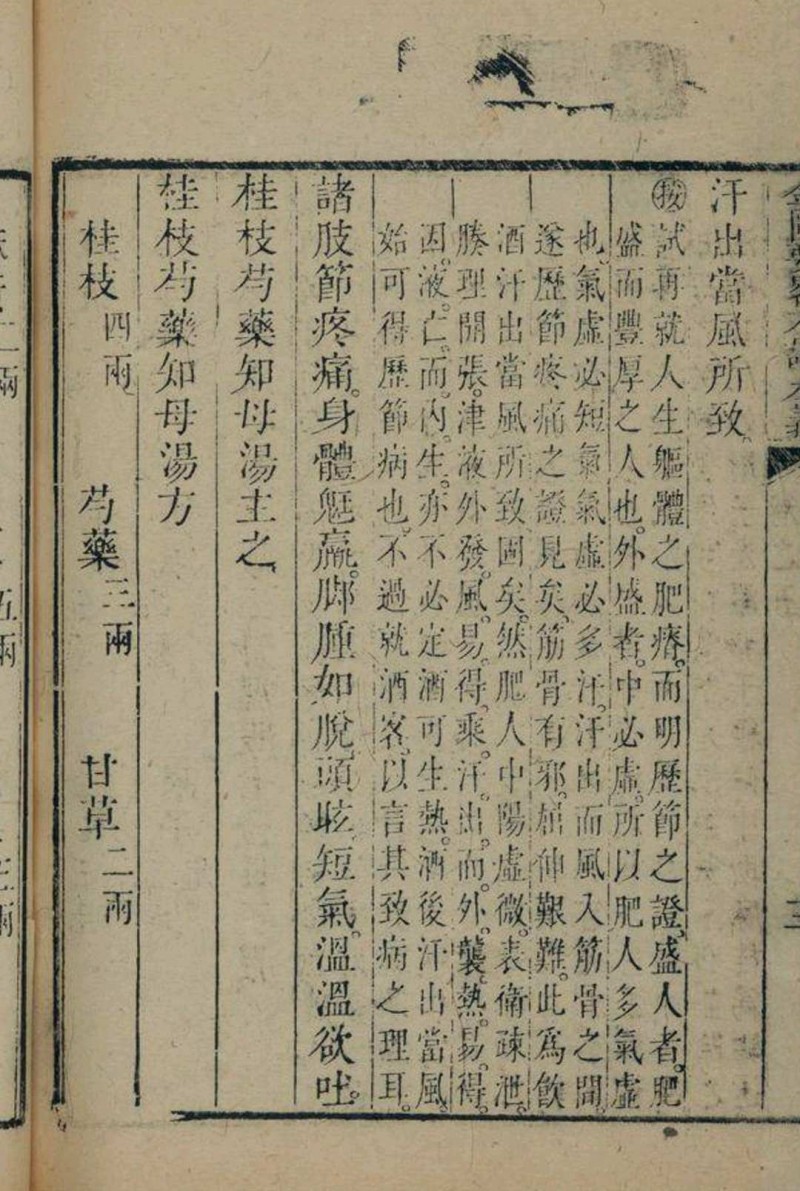 汗出當風所致
按試再就人生軀體之肥瘠。而明歷節之證。盛人者。肥
盛而豐厚之人也。外盛者。中必虛。所以肥人多氣虛
也。氣虛必短氣。氣虛必多汗。汗出而風入筋骨之間。
遂歷節疼痛之證見矣。筋骨有邪。屈伸艱難。此爲飲
酒汗出當風所致固矣。然肥人中陽虛微。表衛疎泄。
腠理開張。津液外發。風易得乘。汗出而外襲。熱易得
因液亡而內生。亦不必定酒可生熱。酒後汗出當風。
始可得歷節病也。不過就酒客以言其致病之理耳。
諸肢節疼痛。身體尫羸。脚腫如脫。頭眩短氣。溫溫欲吐。
桂枝芍藥知母湯主之
桂枝芍藥知母湯方
桂枝四兩 芍藥三兩 甘草二兩